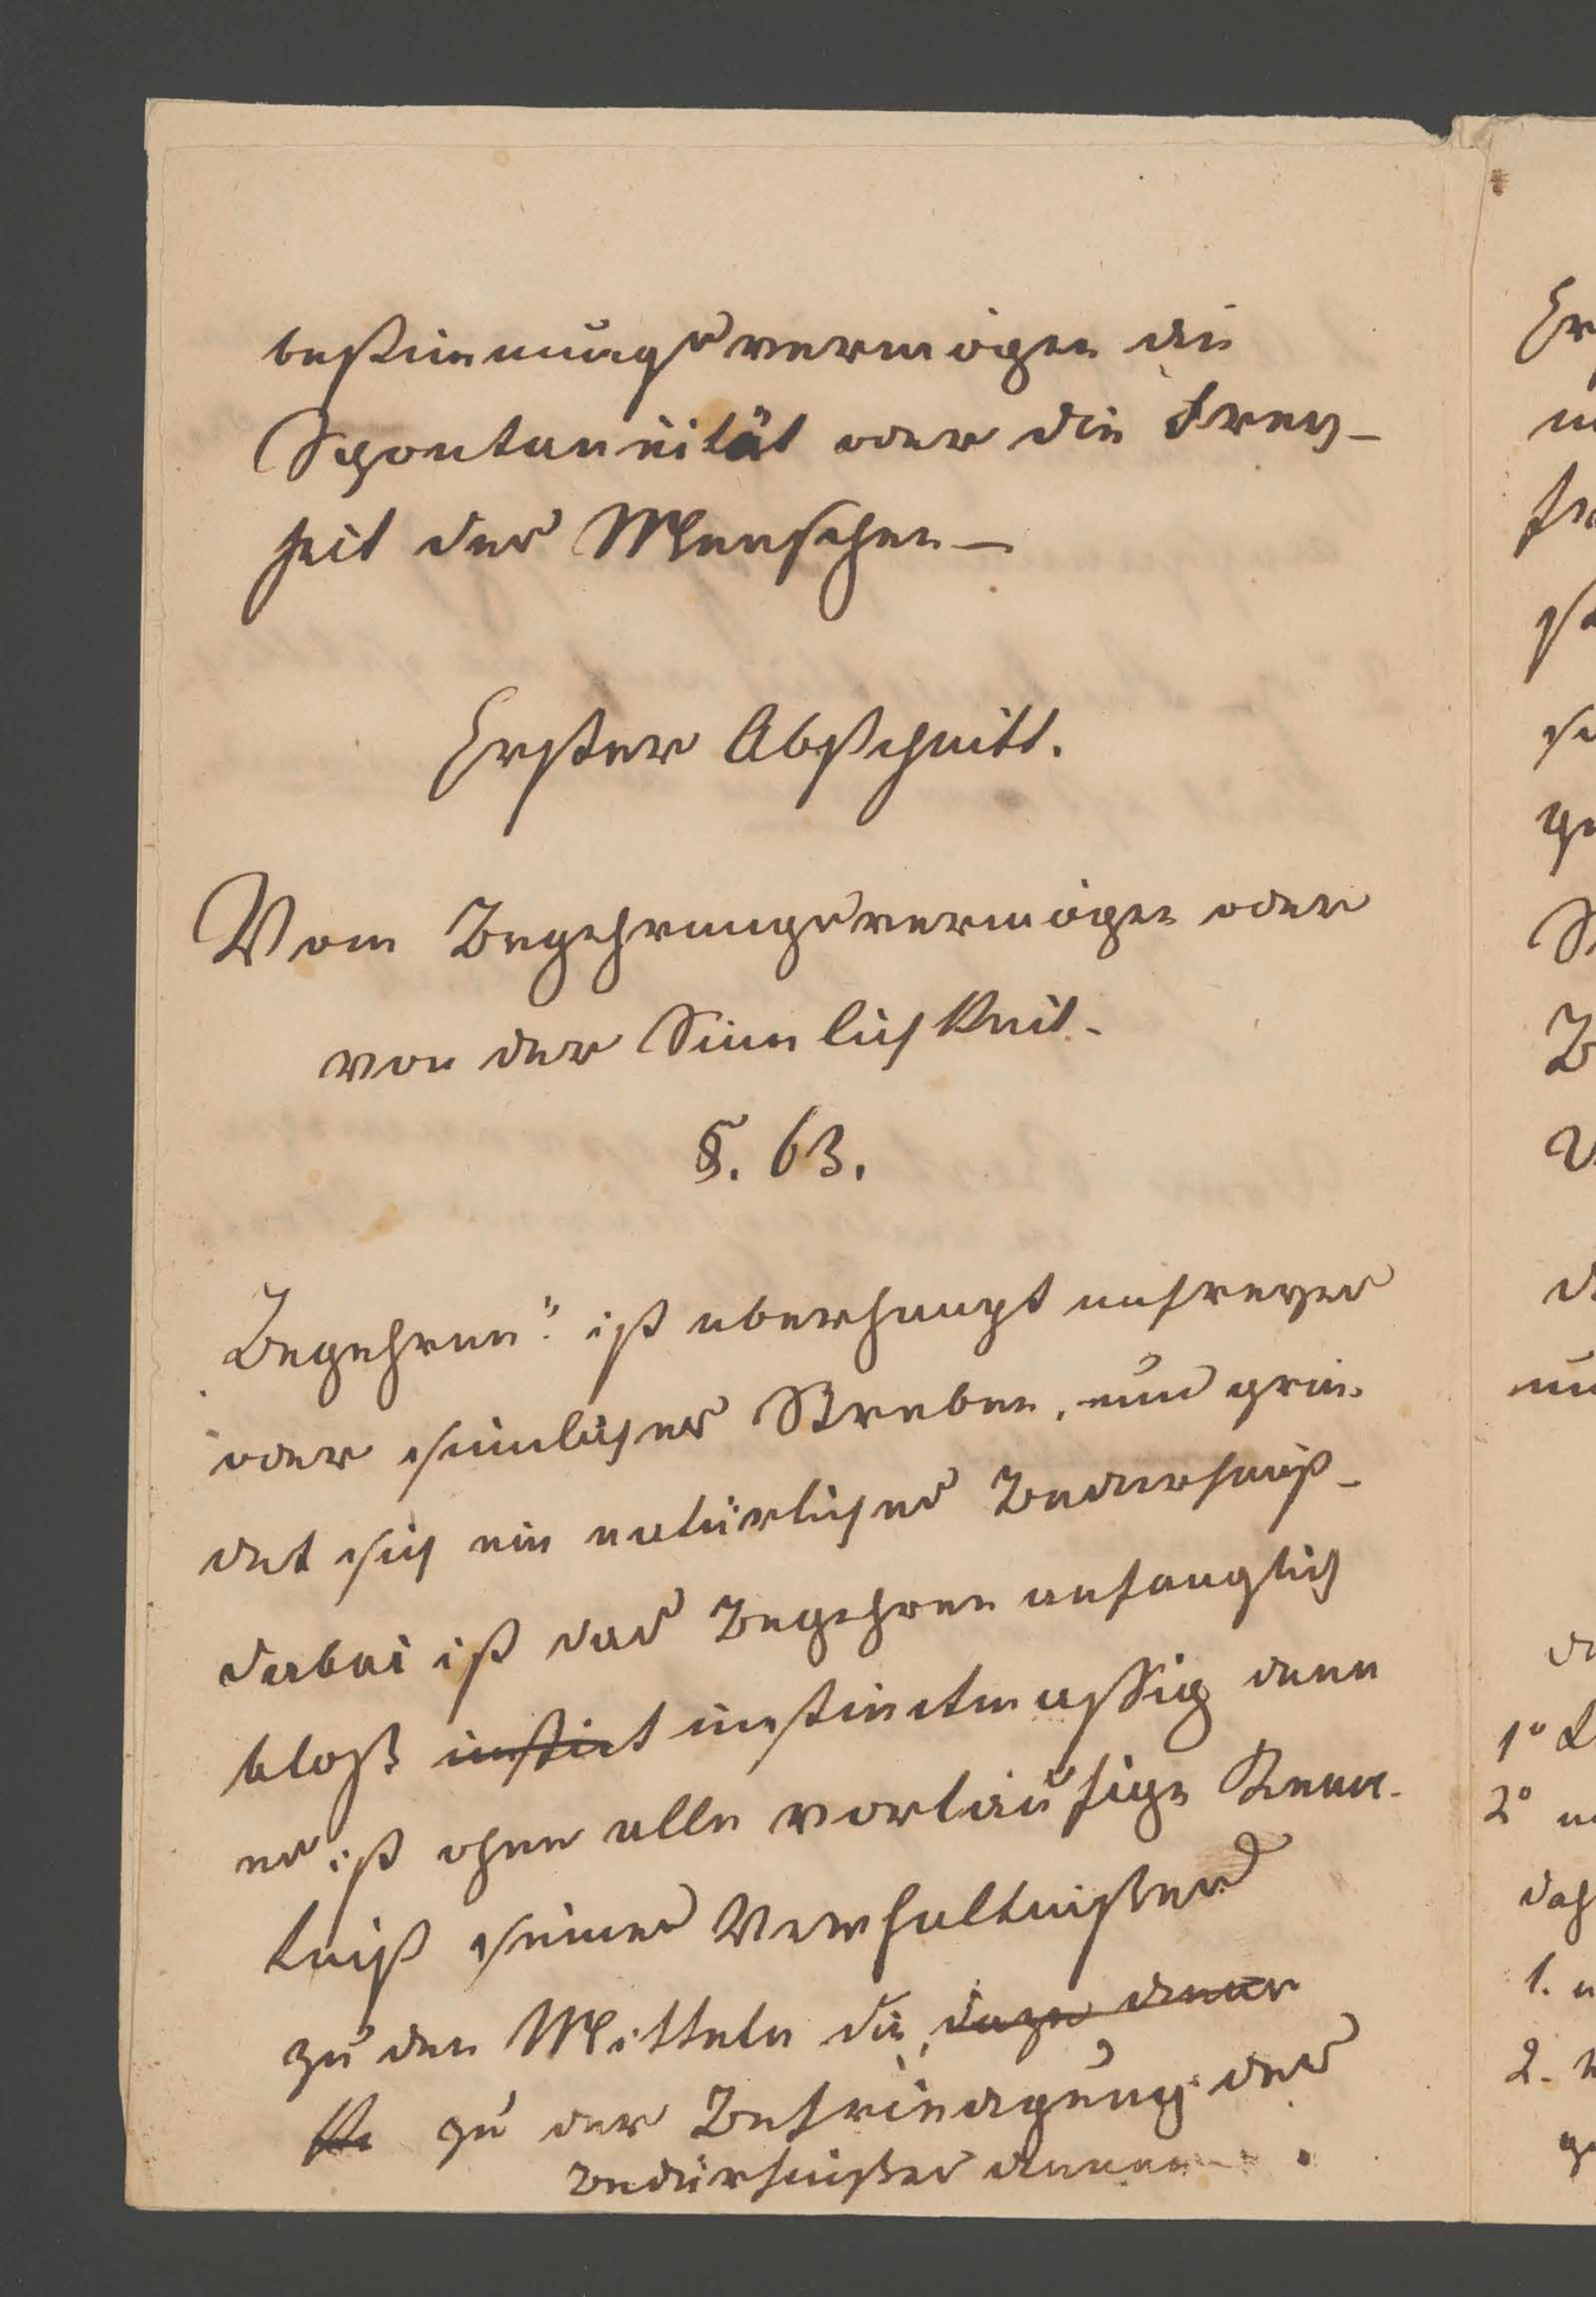 bestimmungsvermögen die
Spontaneität oder die Frey-
heit des Menschen –
Erster Abschnitt.
Vom Begehrungsvermögen oder
von der Sinnlichkeit.
§. 63.
Begehren: ist uberhaupt unfreyes
oder sinnliches Streben, und grün-
det sich ein natürliches Bedurfniß -
dabei ist das Begehren anfanglich
bloß instict instinctmassig denn
es ist ohne alle vorläufige Kenn-
tniß seines Verhaltnisses
zu den Mitteln die dazu dienen
zu der Befriedigung des
Bedürfnißes dienen